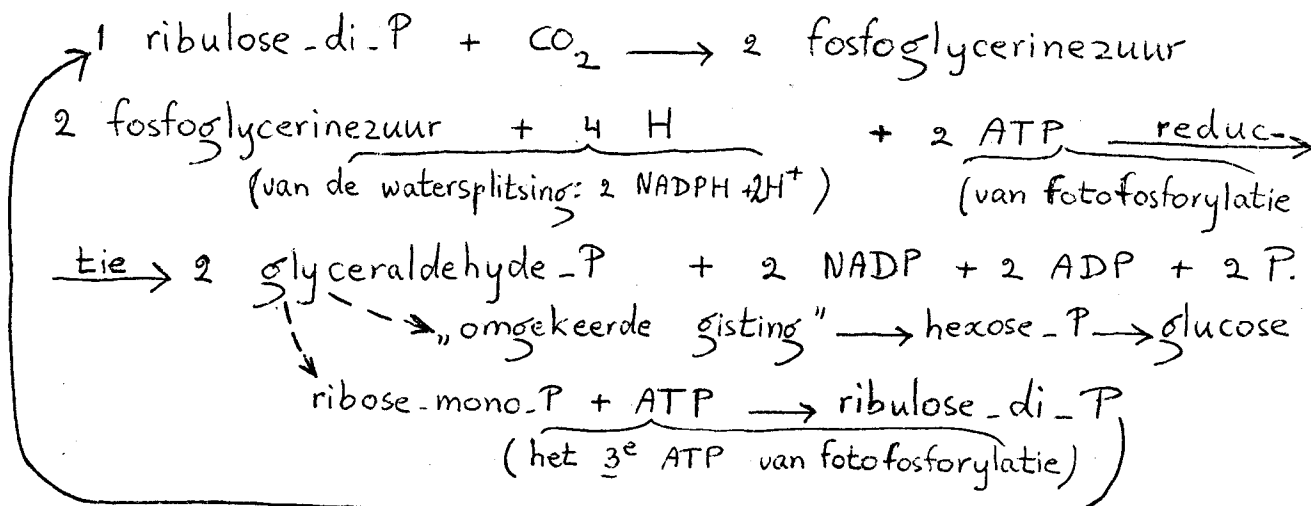 1 ribulose-di-P + CO₂ ⟶ 2 fosfoglycerinezuur
2 fosfoglycerinezuur + 4 H + 2 ATP reduc-
(van de watersplitsing: 2 NADPH + 2H⁺) (van fotofosforylatie
tie → 2 glyceraldehyde-P + 2 NADP + 2 ADP + 2 P.
„omgekeerde gisting" → hexose-P → glucose
ribose-mono-P + ATP ⟶ ribulose-di-P
(het 3e ATP van fotofosforylatie)